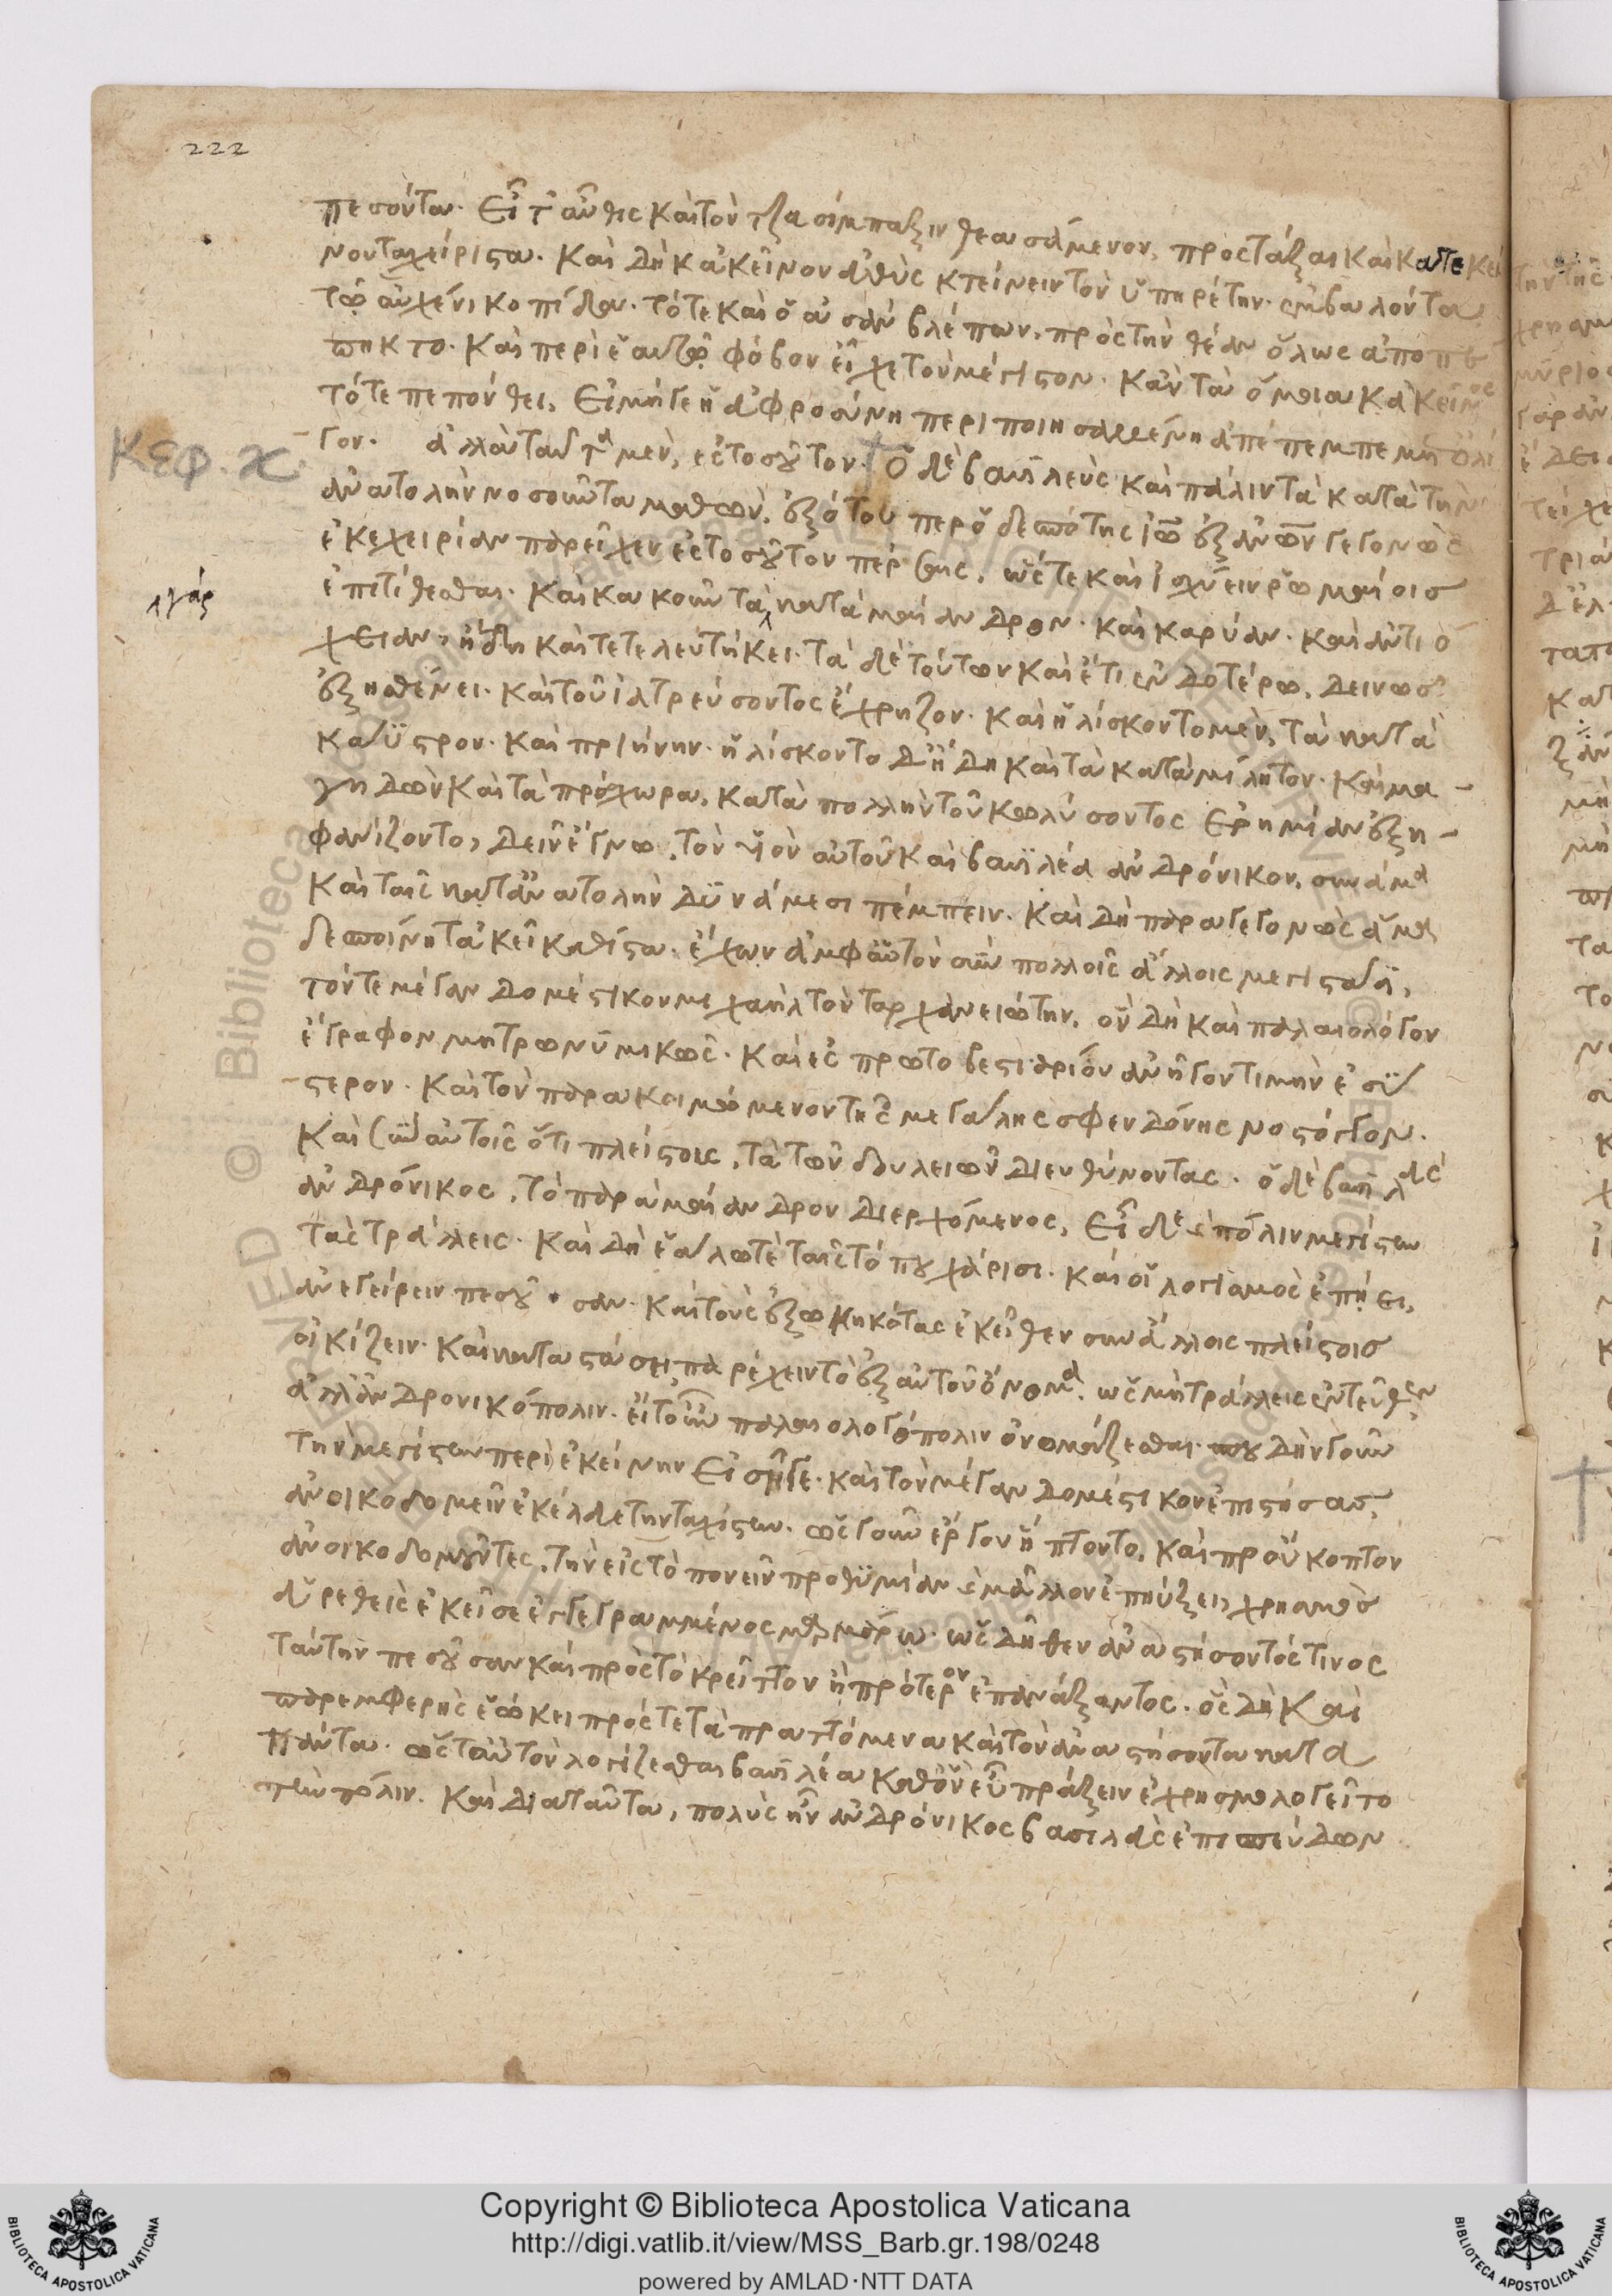 222
πεσόντα. εἶτ' αὖθις καὶ τὸν τζασίμπαξιν θεασάμενον, προστάξαι κατεκεί
νου ταχείριστα. καὶ δὴ κἀκεῖνον εὐθὺς κτείνειν τὸν ὑπηρέτην. ἐμβαλόντα
τῷ αὐχένι κοπίδα. τότε καὶ ὁ αὐσὰν βλέπων, πρὸς τὴν θέαν ὅλως ἀποπέ
πηκτο. καὶ περὶ ἑαυτῷ φόβον εἶχε τὸν μέγιστον. κἂν τὰ ὅμοια κἀκεῖνος
τότε πεπόνθει, εἰ μήγε ἡ ἀφροσύνη περιποιησαμένη ἀπέπεμπε
γον. ἀλλὰ ταῦτα μὲν, ἐς τοσοῦτον. ὁ δὲ βασιλεὺς καὶ πάλιν τὰ κατὰ τὴν
ΚΕΦ. κ.
ἀνατολὴν νοσοῦντα μαθὼν, ἐξότου περ ὁ δεσπότης ἰω ἐξ ἀνων γεγονὼς
ἐκεχειρίαν παρεῖχεν ἐς τοσοῦτον πέρσαις, ὥστε καὶ ἰσχύειν ῥωμαίοις
ἐπιτίθεσθαι. καὶ κακοῦν τὰ κατὰ μαίανδρον. καὶ καρίαν. καὶ ἀντιό
γὰρ
χειαν, ἤδη καὶ τετελευτήκει. τὰ δὲ τούτων καὶ ἔτι ἐνδοτέρω, δεινῶς
ἐξησθένει. καὶ τοῦ ἰατρεύσοντος ἔχρηζον. καὶ ἡλίσκοντο μὲν, τὰ κατὰ
κάϋστρον. καὶ πριήνην. ἡλίσκοντο δ' ἤδη καὶ τὰ κατὰ μίλητον. καὶ μα-
γηδὼν καὶ τὰ πρόσχωρα, κατὰ πολλὴν τοῦ κωλύσοντος ἐρημίαν ἐξη-
φανίζοντο, δεῖν ἔγνω, τὸν υἱὸν αὐτοῦ καὶ βασιλέα ἀνδρόνικον, συνάμα
καὶ ταῖς κατ' ἀνατολὴν δυνάμεσι πέμπειν. καὶ δὴ παραγεγονὼς ἅμα
δεσποίνῃ τἀκεῖ καθίστα. ἔχων ἀμφ' αὑτὸν σὺν πολλοῖς ἄλλοις μεγιστᾶσι,
τόν τε μέγαν δομέστικον μιχαὴλ τὸν ταρχανειώτην, ὃν δὴ καὶ παλαιολόγον
ἔγραφον μητρωνυμικῶς. καὶ ἐς πρωτοβεστιαρίου ἀνῆγον τιμὴν ἐσύ
στερον. καὶ τὸν παρακοιμώμενον τῆς μεγάλης σφενδόνης νοστόγγον.
καὶ σὺν αὐτοῖς ὅτι πλείστοις, τὰ τῶν δουλειῶν διευθύνοντας. ὁ δὲ βασιλεὺς
ἀνδρόνικος, τὸ παρὰ μαίανδρον διερχόμενος, εἶδε πόλιν μεγίστην
τὰς τράλλεις. καὶ δὴ ἑάλω τε ταῖς τόπου χάρισι. καὶ οἱ λογισμὸς ἐπῄει,
ἀνεγείρειν πεσοῦσαν. καὶ τοὺς ἐξῳκηκότας ἐκεῖθεν συνάλλοις πλείστοις
οἰκίζειν. καὶ καταστάσῃ, παρέχειν τὸ ἐξ αὐτοῦ ὄνομα, ὡς μὴ τράλλεις ἐντεῦθεν
ἀλλ' ἀνδρονικόπολιν. εἴτουν παλαιολογόπολιν ὀνομάζεσθαι. σπουδὴν γοῦν
τὴν μεγίστην περὶ ἐκείνην εἰσῆγε. καὶ τὸν μέγαν δομέστικον ἐπιστήσας,
ἀνοικοδομεῖν ἐκέλευε τὴν ταχίστην. ὡς γοῦν ἔργου ἥπτοντο, καὶ προὔκοπτον
ἀνοικοδομοῦντες, τὴν εἰς τὸ πονεῖν προθυμίαν μᾶλλον ἐπηύξει, χρησμὸς
εὑρεθεὶς ἐκεῖσε ἐγγεγραμμένος μαρμάρῳ. ὡς δῆθεν ἀναστήσοντός τινος
ταύτην πεσοῦσαν καὶ πρὸς τὸ κρεῖττον ἢ πρότερον ἐπανάξαντος. ὃς δὴ καὶ
παρεμφερὴς ἐῴκει πρός τε τὰ πραττόμενα καὶ τὸν ἀναστήσοντα κατὰ
πάντα. ὡς ταὐτὸν λογίζεσθαι βασιλέα καθ' ὃν εὖ πράξειν ἐχρησμολογεῖτο
τὴν πόλιν. καὶ διαταῦτα, πολὺς ἦν ἀνδρόνικος βασιλεὺς ἐπισπεύδων
Copyright © Biblioteca Apostolica Vaticana
http://digi.vatlib.it/view/MSS_Barb.gr.198/0248
powered by AMLAD·NTT DATA